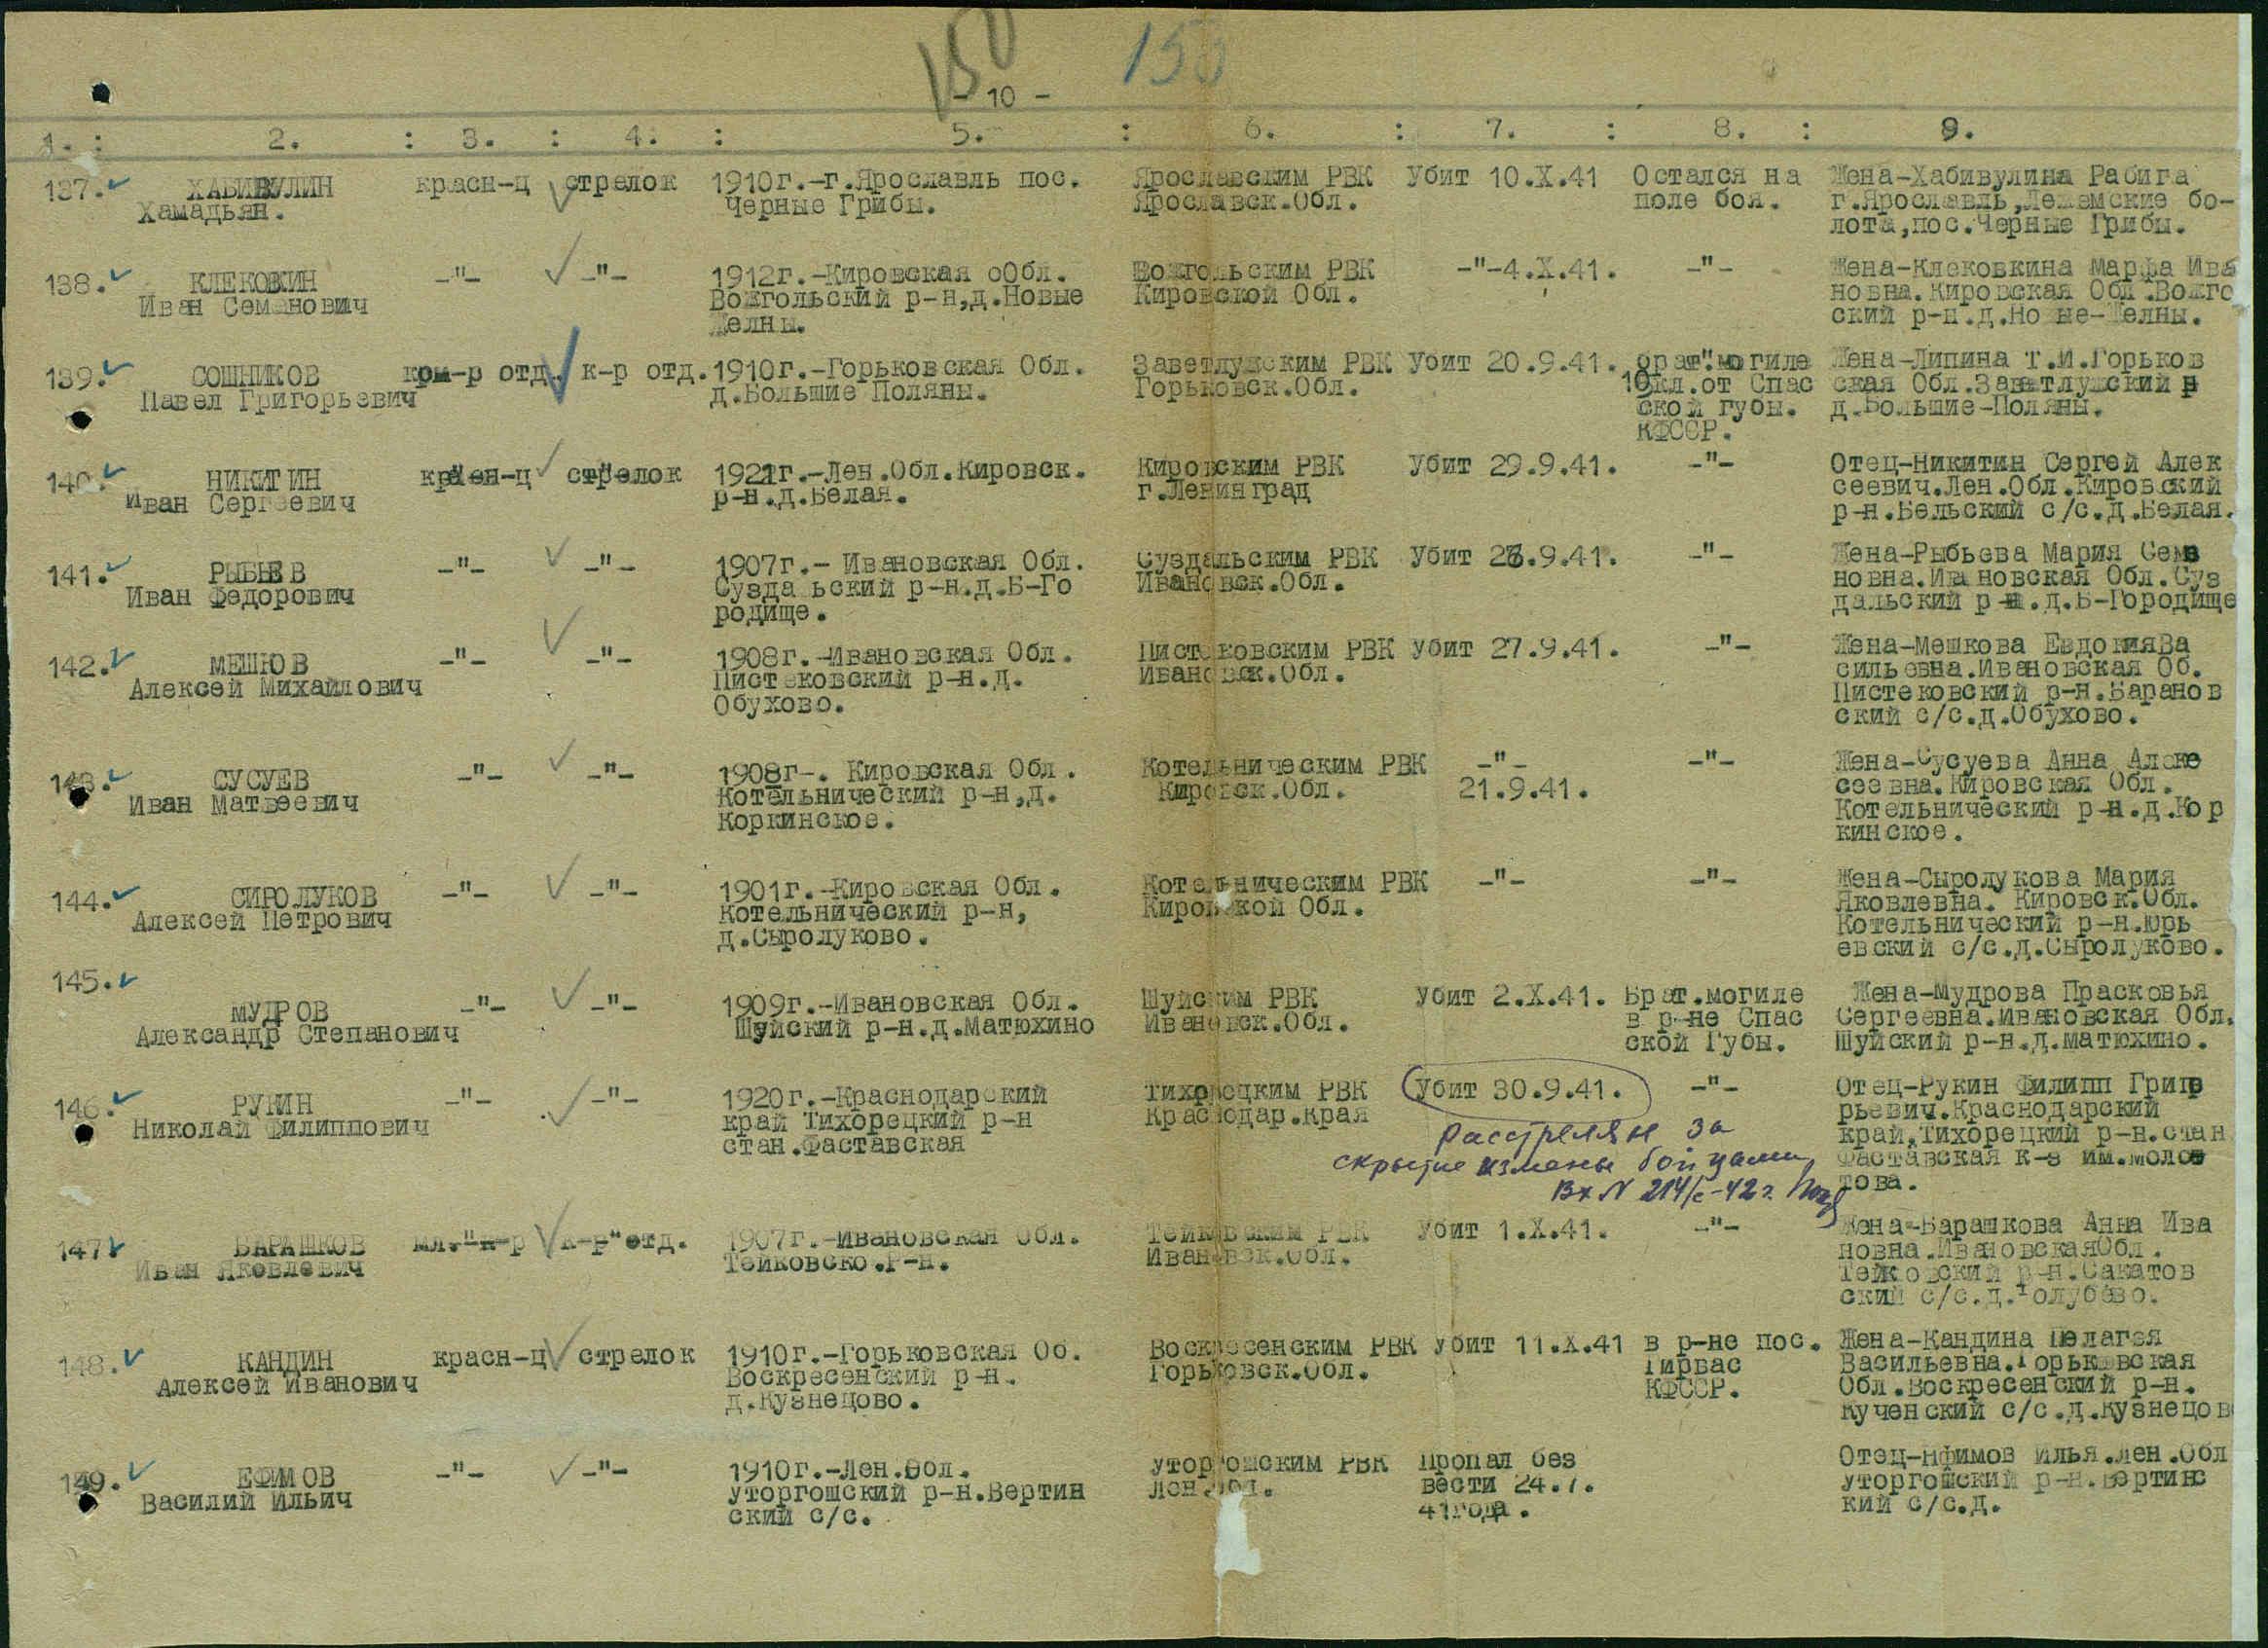 150 150
- 10 -
1. : 2. : 3. : 4. : 5. : 6. : 7. : 8. : 9.
137. ХАБИВУЛИН красн-ц стрелок 1910г.-г.Ярославль пос. Ярославским РВК Убит 10.X.41 Остался на Жена-Хабивулина Рабига
Хамадьян. Черные Грибы. Ярославск.Обл. поле боя. г.Ярославль,Ляземские бо-
лота,пос.Черные Грибы.
138. КЛЕКОВКИН -"- -"- 1912г.-Кировская оОбл. Вожгольским РВК -"-4.X.41. -"- Жена-Клековкина Марфа Ива
Иван Семенович Вожгольский р-н,д.Новые Кировской Обл. новна.Кировская Обл.Вожго
Челны. ский р-н.д.Но ые-Челны.
139. СОШНИКОВ ком-р отд. к-р отд. 1910г.-Горьковская Обл. Заветлужским РВК Убит 20.9.41. брат.могиле Жена-Липина Т.И.Горьков
Павел Григорьевич д.Большие Поляны. Горьковск.Обл. 10кл.от Спас ская Обл.Заветлужский р
ской губы. д.Большие-Поляны.
КФССР.
140. НИКИТИН красн-ц стрелок 1921г.-Лен.Обл.Кировск. Кировским РВК Убит 29.9.41. -"- Отец-Никитин Сергей Алек
Иван Сергеевич р-н.д.Белая. г.Ленинград сеевич.Лен.Обл.Кировский
р-н.Бельский с/с.д.Белая.
141. РЫБЬЕВ -"- -"- 1907г.- Ивановская Обл. Суздальским РВК Убит 23.9.41. -"- Жена-Рыбьева Мария Семе
Иван Федорович Сузда ьский р-н.д.Б-Го Ивановск.Обл. новна.Ивановская Обл.Суз
родище. дальский р-н.д.Б-Городище
142. МЕШКОВ -"- -"- 1908г.-Ивановская Обл. Пистековским РВК Убит 27.9.41. -"- Жена-Мешкова ЕвдокияВа
Алексей Михайлович Пистековский р-н.д. Ивановск.Обл. сильевна.Ивановская Об.
Обухово. Пистековский р-н.Баранов
ский с/с.д.Обухово.
143. СУСУЕВ -"- -"- 1908г-. Кировская Обл. Котельническим РВК -"- -"- Жена-Сусуева Анна Алеке
Иван Матвеевич Котельнический р-н,д. Кировск.Обл. 21.9.41. сеевна.Кировская Обл.
Коркинское. Котельнический р-н.д.Кор
кинское.
144. СИРОЛУКОВ -"- -"- 1901г.-Кировская Обл. Котельническим РВК -"- -"- Жена-Сыролукова Мария
Алексей Петрович Котельнический р-н, Кировской Обл. Яковлевна. Кировск.Обл.
д.Сыролуково. Котельнический р-н.Юрь
евский с/с.д.Сыролуково.
145.
МУДРОВ -"- -"- 1909г.-Ивановская Обл. Шуйским РВК Убит 2.X.41. Брат.могиле Жена-Мудрова Прасковья
Александр Степанович Шуйский р-н.д.Матюхино Ивановск.Обл. в р-не Спас Сергеевна.Ивановская Обл.
ской Губы. Шуйский р-н.д.Матюхино.
146. РУКИН -"- -"- 1920г.-Краснодарский Тихорецким РВК Убит 30.9.41. -"- Отец-Рукин Филипп Григо
Николай Филиппович край Тихорецкий р-н Краснодар.Края рьевич.Краснодарский
стан.Фаставская край,Тихорецкий р-н.стан
расстрелян за
скрытие измены бойцами Фаставская к-з им.Молое
Вх N 214/с-42г. това.
147. БАРАШКОВ мл."к-р к-р"отд. 1907г.-Ивановская Обл. Тейковским РВК Убит 1.X.41. -"- Жена-Барашкова Анна Ива
Иван Яковлевич Тейковско.р-н. Ивановск.Обл. новна.ИвановскаяОбл.
Тейковский р-н.Сакатов
ский с/с.д.Голубево.
148. КАНДИН красн-ц стрелок 1910г.-Горьковская Об. Воскресенским РВК Убит 11.X.41 в р-не пос. Жена-Кандина Пелагея
Алексей Иванович Воскресенский р-н. Горьковск.Обл. Гирвас Васильевна.Горьковская
д.Кузнецово. КФССР. Обл.Воскресенский р-н.
Кученский с/с.д.Кузнецов
149. ЕФИМОВ -"- -"- 1910г.-Лен.Обл. Уторгошским РВК Пропал без Отец-Ифимов Илья.Лен.Обл
Василий Ильич Уторгошский р-н.Вертин Лен.Обл. вести 24.7. Уторгошский р-н.Вертинс
ский с/с. 41года. кий с/с.д.